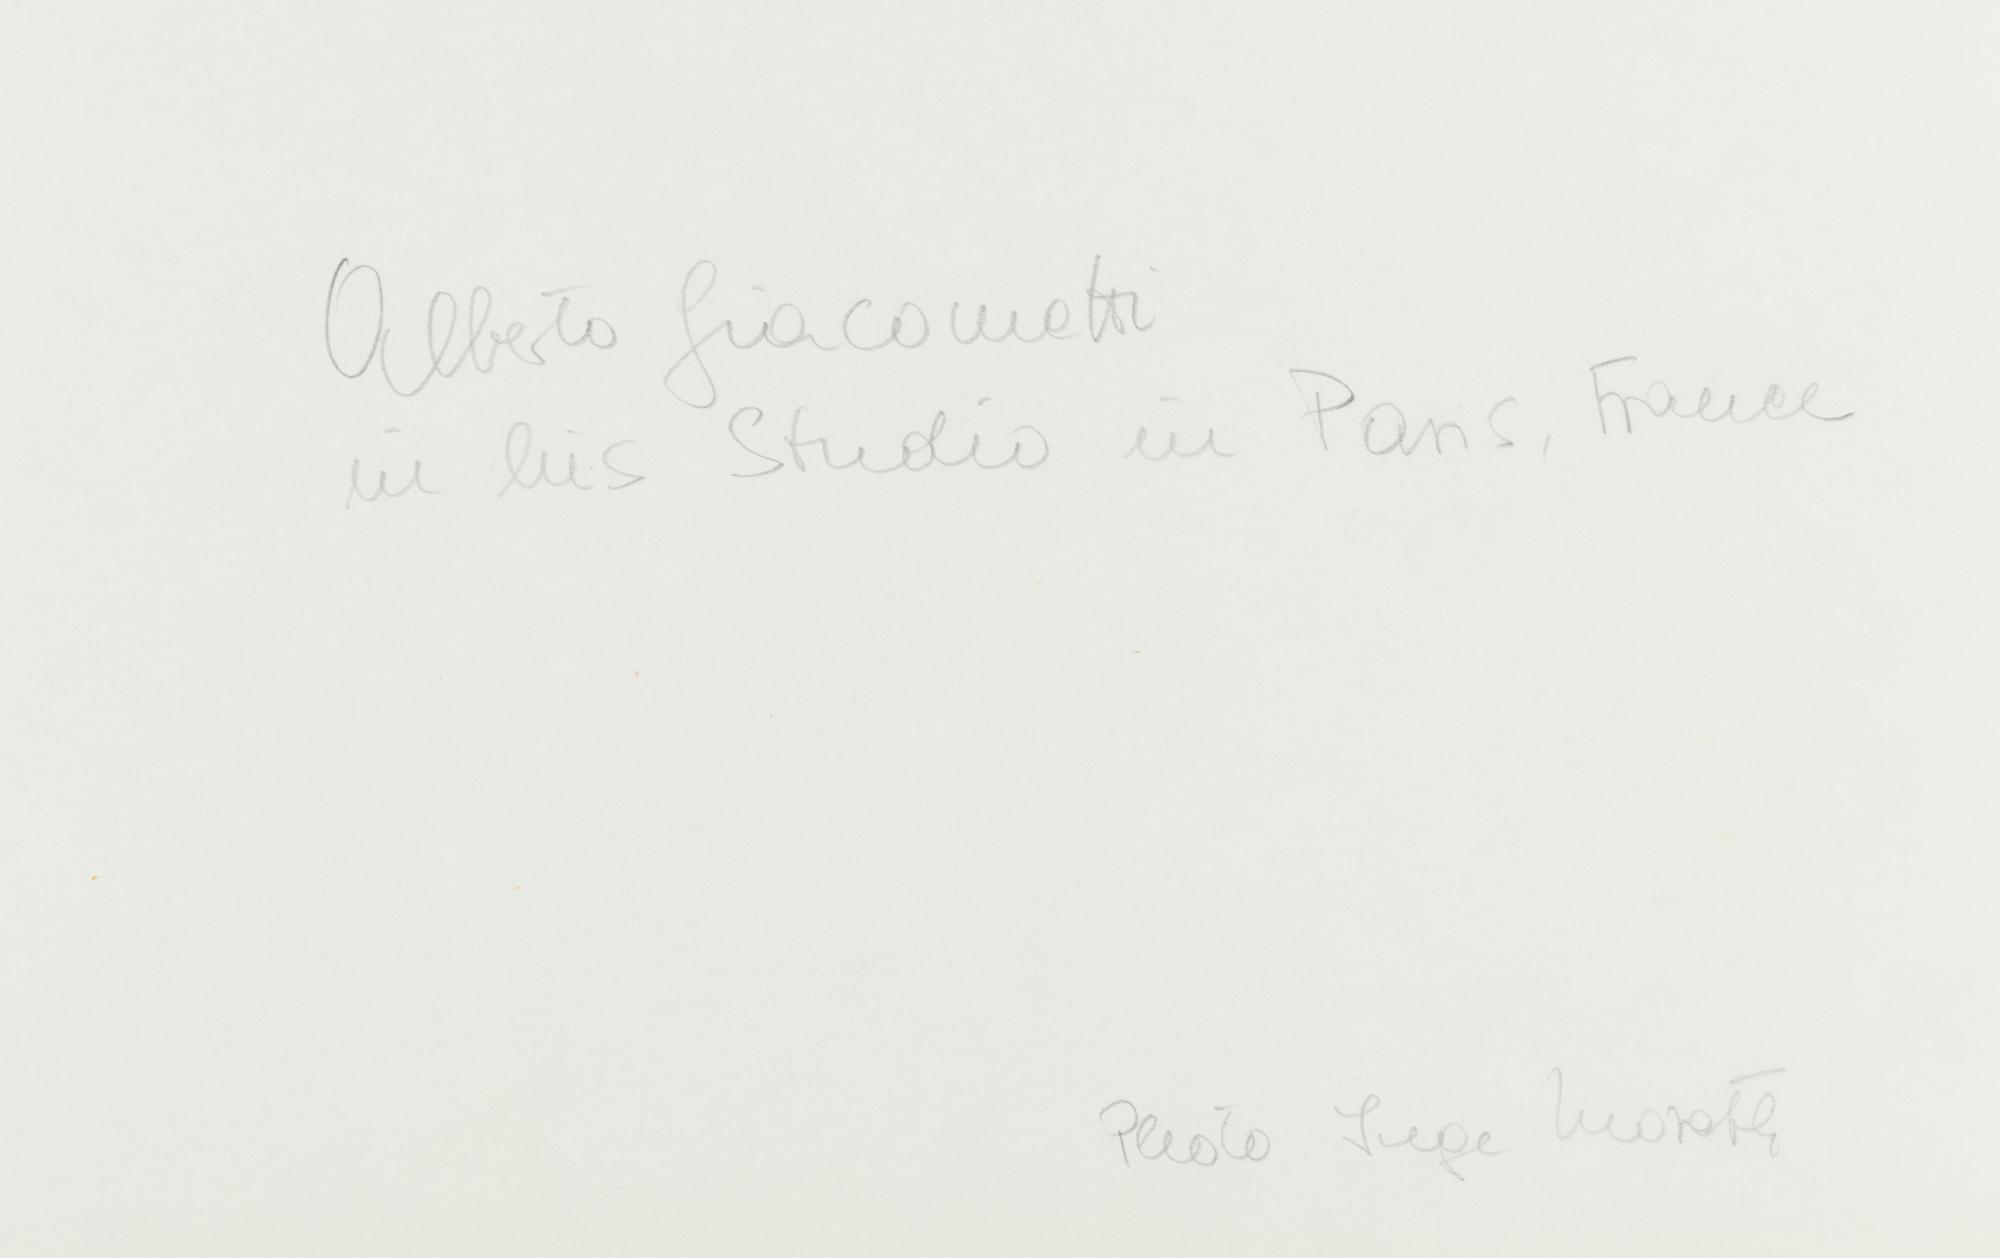 Alberto Giacometti
in his Studio in Paris, France
Photo Inge Morath